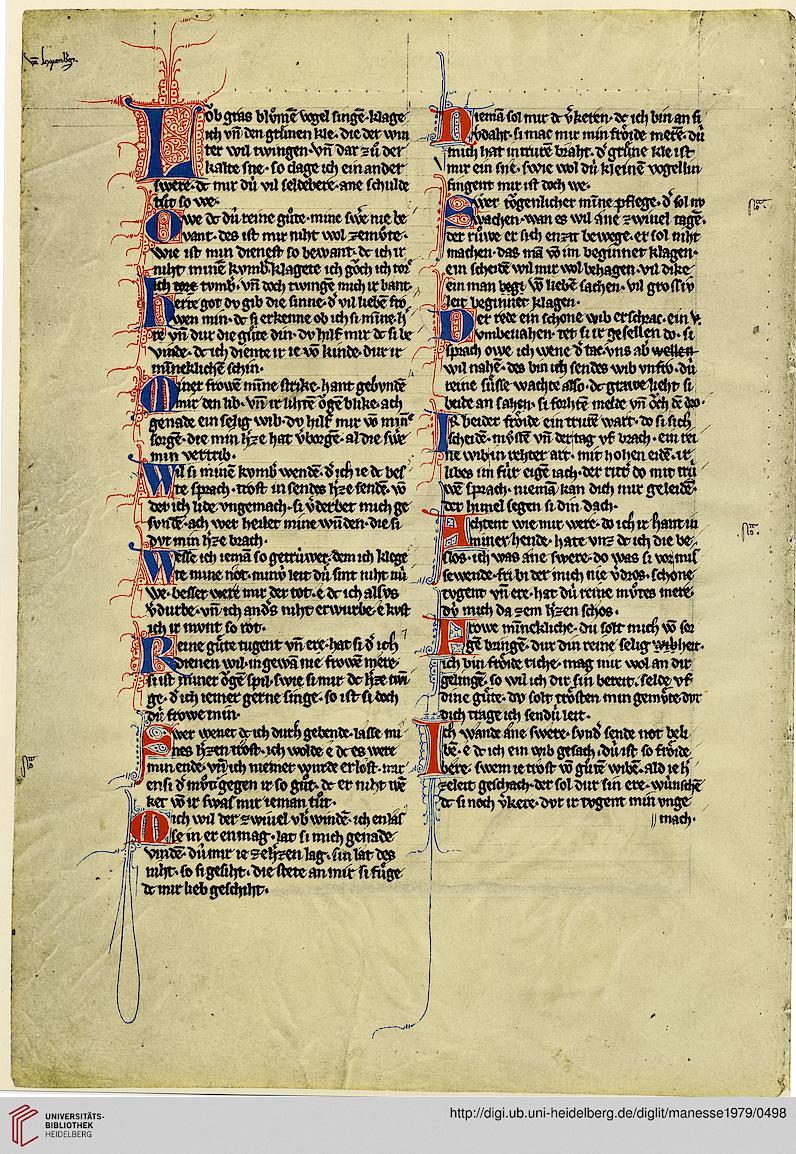 Lob gras blůmē vogel singē· klage
ich vn̄ den grůnen kle· die der win
ter wil twingen· vn̄ dar zů der
kalte sne· so clage ich ein ander
swere· dc mir dú vil seldebere· ane schulde
tůt so we·
Owe dc dú reine gůte· mine swē nie be
vant· des ist mir niht wol zemůte·
wie ist min dienest so bewant· dc ich ir
niht minē kvmb̾ klagete ich
ich tore tvmb̾· vn̄ doch twingē mich ir bant·
Herre got dv gib die sinne· d̾ vil liebē fro
wen min· dc si erkenne ob ich si miñe· h̾
re vn̄ dur die gůte din· dv hilf mir dc si be
vinde· dc ich diente ir ie vō kinde· dur ir
miñeklichē schin·
Miner frowē miñe strike· hant gebvndē
mir den lib· vn̄ ir lihtē ǒgē blike· ach
genade ein selig wib· dv hilf mir vō minē
sorgē· die min h̾ze hat v̾borgē· al die swe̾
min vertrib·
Wil si minē kvmb̾ wendē· d̾ ich ie dc bes
te sprach· trost in sendes h̾ze sendē· vō
der ich lide vngemach· si v̾derbet mich ge
svndē· ach wer heilet mine wůden· die si
dvr min h̾ze brach·
Wesse ich iemā so getrúwer· dem ich klege
te mine not· minú leit dú sint niht nú
we· besser were mir der tot· e dc ich alsvs
v̾durbe· vn̄ ich and̾s niht erwurbe· e kvst
ich ir mvnt so rot·
Reine gůte tugent vn̄ ere· hat si d̾ ich
dienen wil· in gewā nie frowē mere·
si ist miner ǒgē spil· swie si mir dc h̾ze twī
ge· d̾ ich iemer gerne singe· so ist si doch
dú frowe min·
Swer wenet dc ich durh̾ gebende· lasse mi
nes h̾zen trost· ich wolde e dc es were
min ende· vn̄ ich niemer wurde erlost· mir
ensi d̾ mvt gegen ir so gůt· dc er niht wē
ket vō ir swas mir ieman tůt·
Mich wil der zwiuel vb̾ windē· ich enlas
se in er enmag· lat si mich genade
vindē· dú mir ie zeh̾zen lag· sin lat des
niht· so si gesiht· die stete an mir si fůge
dc mir lieb geschiht·
Niemā sol mir dc v̾keren· dc ich bin an si
v̾daht· si mac mir min frǒide merē· dú
mich hat in trurē braht· d̾ grůne kle ist
mir ein sne· swie wol dú kleinē vogellin
singent mir ist doch we·
Swer tǒgenlicher miñe pflege· d̾ sol
wachen· wan es wil āne zwiuel tagē·
der růwe er sich enzit bewege· er sol niht
machen· das mā vō im beginnet klagen·
ein scheidē wil mir wol behagen· vil dike
ein man begī vō liebē sachen· vil grossiv
leit beginnet klagen·
Der rede ein schone wib erschrac· ein
vmbeuahen· tet si ir gesellen do· si
sprach owe ich wene d̾ tac vns ab wellen
wil nahē· des bin ich sendes wib vnfro· dú
reine sůsse wachte also· dc grawe lieht si
beide an sahen· si forhtē melde vn̄ ǒch dc dro·
Ir beider frǒide ein trurē wart· do si sich
scheidē· můstē vn̄ der tag vf brach· ein rei
ne wib in rehter art· mit hohen eidē· ir
libes im fúr eigē iach· der ritt̾ do mit trú
wē sprach· niemā kan dich mir geleidē·
der himel segen si din dach·
Ahtent wie mir were· do ich ir hant in
miner hende· hate vnz dc ich die be
slos· ich was āne swere· do was si vor mis
sewende· fri bi der mich nie v̾dros· schone
tvgent vn̄ ere· hat dú reine mv̊tes mere
dv mich da zem h̾zen schos·
Frowe miñekliche· du solt mich vō sor
gē bringē· dur din reine selig wibheit·
ich bin frǒide riche· mag mir wol an dir
gelingē· so wil ich dir sin bereit· selde vf
dine gůte· dv solt trǒsten min gemǒte· dvr
dich trage ich sendú leit·
Ich wānde āne swere· svnd̾ sende not beli
bē· e dc ich ein wib gesach· dú ist so frǒide
bere· swem ie trost vō gůtē wibē· ald ie h̾
zeleit geschach· der sol dur sin ere· wúnschē
dc si noch v̾kere· dvr ir tvgent min vnge
mach·
UNIVERSITÄTS-
BIBLIOTHEK
HEIDELBERG
http://digi.ub.uni-heidelberg.de/diglit/manesse1979/0498